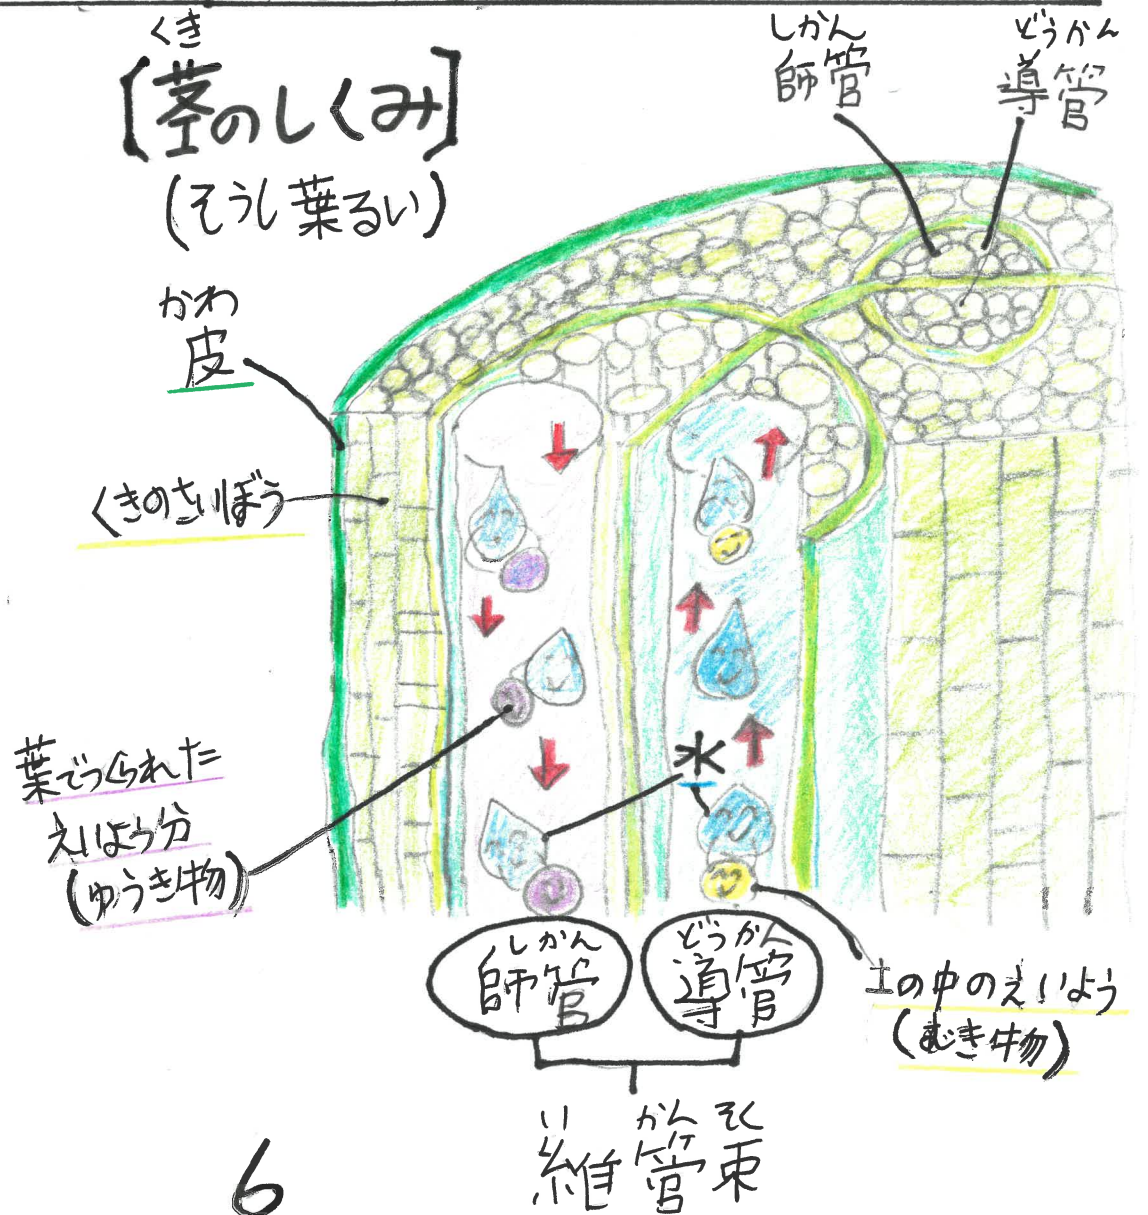 くき
[茎のしくみ]
(そうし葉るい)
しかん
師管
どうかん
導管
かわ
皮
くきのさいぼう
葉でつくられた
えいよう分
(ゆうき物)
水
しかん
師管
どうかん
導管
土の中のえいよう
(むき物)
い かん そく
維管束
6